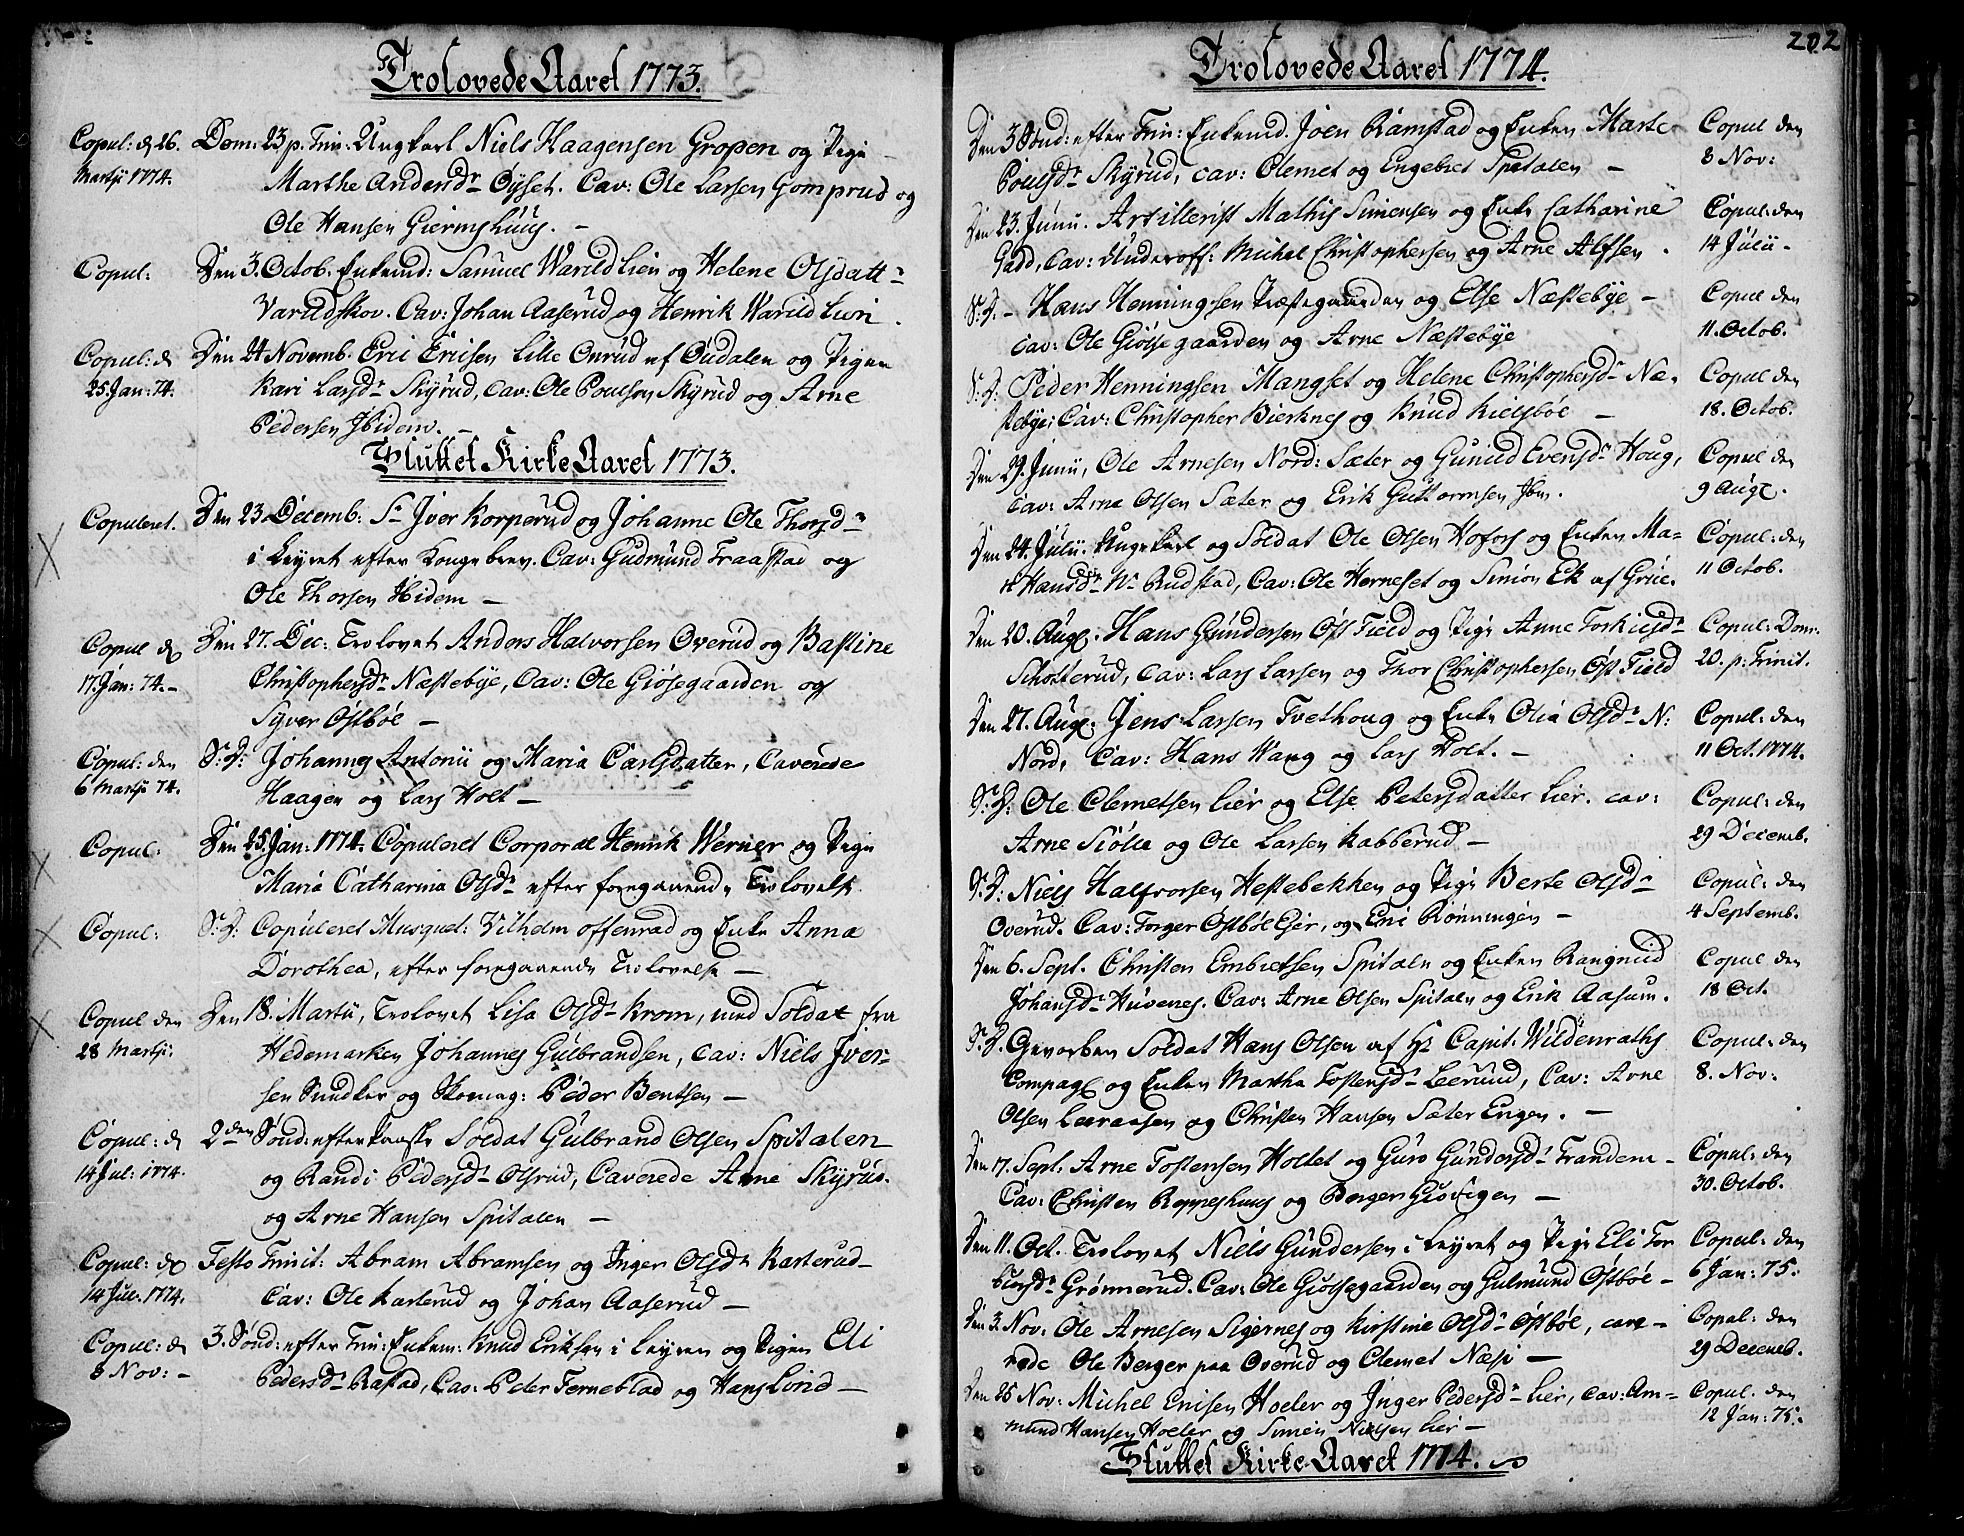 Trolovede Aaret 1773.
Copul: d 26. Martii 1774.
Dom: 23 p. Trin: Ungkarl Niels Haagensen Gropen og Pige
Marthe Andersdr Öÿset. Cav: Ole Larsen Gomprud og
Ole Hansen Giermshuus. –
Copul:
Den 3. Octob. Enkemd: Samuel Warild Lien og Helene Olsdattr
Varildskov. Cav: Johan Aaserud og Henrik Warild Lien.
Copul: d 25. Jan: 74.
Den 24 Novemb. Eric Ericsen Lille Onrud af Oudalen og Pigen
Kari Larsdr Skÿrud, Cav: Ole Poulsen Skÿrud og Arne
Pedersen Ibidem. –
Sluttet Kirke Aaret 1773.
Copuleret.
Den 23 Decemb: Sr Iver Korperud og Johanne Ole Thorsdr
i Leÿret efter Konge brev. Cav: Gudmund Fraastad og
Ole Thorsen Ibidem –
Copul d 17. Jan: 74. –
Den 27. Dec: Trolovet Anders Halvorsen Overud og Bastine
Christophersdr Næstebÿe, Cav: Ole Giösegaarden og
Sÿver Östböe –
Copul: den 6 Martii 74.
S: D: Johannes Antonii og Maria Carlsdatter, Caverede
Haagen og Lars Holt –
Copul:
Den 25. Jan: 1774. Copuleret Corporal Henrik Werner og Pige
Maria Catharina Olsdr efter foregaaende Trolovelse
Copul:
S: D: Copuleret Musquet: Vilhelm Offenrad og Enke Anna
Dorothea, efter foregaaende Trolovelse –
Copul den 28 Martii.
Den 18. Martii, Trolovet Lisa Olsdr Krom, med Soldat fra
Hedemarken Johannes Gulbrandsen, Cav: Niels Iver=
sen Snedker og Skomag: Peder Bentsen –
Copul: d 14 Jul: 1774.
2den Sönd: efter Paaske Soldat Gulbrand Olsen Spitalen
og Randi Pedersdr Olsrud, Caverede Arne Skÿrud.
og Arne Hansen Spitalen –
Copul: d 14 Jul. 1774.
Festo Trinit: Abram Abramsen og Inger Olsdr Karterud –
Cav: Ole Karterud og Johan Aaserud –
Copul: d 8 Nov: –
3. Sönd: efter Trin: Enkem: Knud Eriksen i Leÿren og Pigen Eli
Pedersdr Rastad, Cav: Peter Ferneblad og Hans Lirid –
202
Trolovede Aaret 1774.
Den 3 Sönd: efter Trin: Enkemd. Joen Ramstad og Enken Marte
Poulsdr Skÿrud, Cav: Clemet og Engebret Spitalen –
Copul den 8 Nov:
Den 23. Junii. Artillerist Mathis Simensen og Enke Catharine
Gadd, Cav: Underoff: Michel Christophersen og Arne Alfsen.
Copul: den 14 Julii –
S: D. – Hans Henningsen Præstegaarden og Else Næstebÿe –
Cav: Ole Giösegaarden og Arne Næstebÿe
Copul den 11. Octob.
S: D: Peder Henningsen Mangset og Helene Christophersdr Næ=
stebÿe, Cav: Christopher Bierknes og Knud Kielsböe –
Copul den 18. Octob.
Den 29. Junii, Ole Arnesen Nord: Sæter og Gunild Evensdr Houg,
Cav: Arne Olsen Sæter og Erik Guttormsen Ibm.
Copul den 9 Aug.
Den 24. Julii. Ungekarl og Soldat Ole Olsen Hofors og Enken Ma=
rt Hansdr Nr Rudstad, Cav: Ole Herneset og Simon Ek af Grue.
Copul: den 11 Octob.
Den 20. Aug. Hans Gundersen Öst Field og Pige Anne Torkielsdr
Schotterud, Cav: Lars Larsen og Thor Christophersen Öst Field
Copul: Dom: 20. p: Trinit.
Den 27. Aug. Jens Larsen Tvethoug og Enke Olia Olsdr N:
Nord, Cav: Hans Wang og Lars Holt. –
Copul: den 11 Oct. 1774.
S: D: Ole Clemetsen Lier og Else Petersdatter Lier. Cav:
Arne Siölie og Ole Larsen Kabberud –
Copul: den 29 Decemb.
S: D: Niels Halfvorsen Hestebekken og Pige Berte Olsdr
Overud. Cav: Torger Östböe Eier, og Eric Rönningen –
Copul: den 4 Septemb.
Den 6. Sept. Christen Embretsen Spitalen og Enken Rangnild
Johansdr Huvenes. Cav: Arne Olsen Spitalen og Erik Aasum.
Copul den 18 Oct.
S: D. Gevorben Soldat Hans Olsen af Hr Capit. Wildenraths
Compag og Enken Martha Tostensdr Leerund, Cav: Arne
Olsen Leeraasen og Christen Hansen Sæter Engen. –
Copul: den 8. Nov:
Den 17. Sept. Arne Tostensen Holtet og Guro Gundersdr Trandem –
Cav: Christen Reppeshuus og Berger Giöfigen –
Copul: den 30. Octob.
Den 11. Oct. Trolovet Niels Gundersen i Leÿret og Pige Eli Tor
biörsdr Grönnerud. Cav: Ole Giösegaarden og Gulmund Östböe –
Copul: den 6 Jan: 75.
Den 3. Nov: Ole Arnesen Sigernes og Kirstine Olsdr Östböe, Cave –
rede Ole Berger paa Overud og Clemet Næsi –
Copul: den 29 Decemb.
Den 25 Nov: Michel Ericsen Hoeler og Inger Pedersdr Lier, Cav: Am=
mund Hansen Hoeler og Simen Nielsen Lier –
Copul. den 12 Jan: 75.
Sluttet Kirke Aaret 1774.